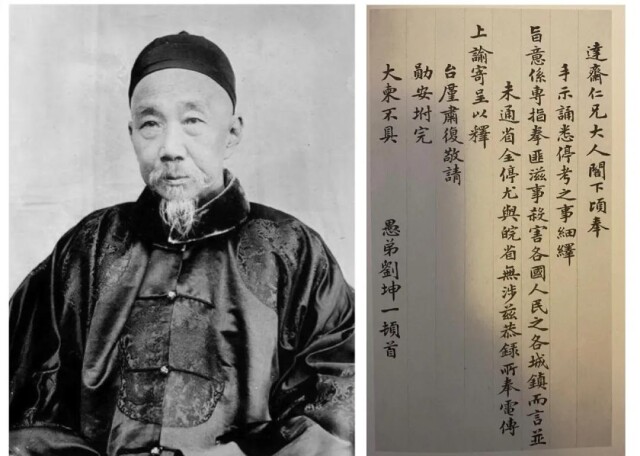 達齋仁兄大人閣下頃奉
手示誦悉停考之事細繹
旨意係專指拳匪滋事殺害各國人民之各城鎮而言並
未通省全停尤與皖省無涉茲恭錄所奉電傳
上諭寄呈以釋
台廑肅復敬請
勛安坿完
大柬不具
愚弟劉坤一頓首